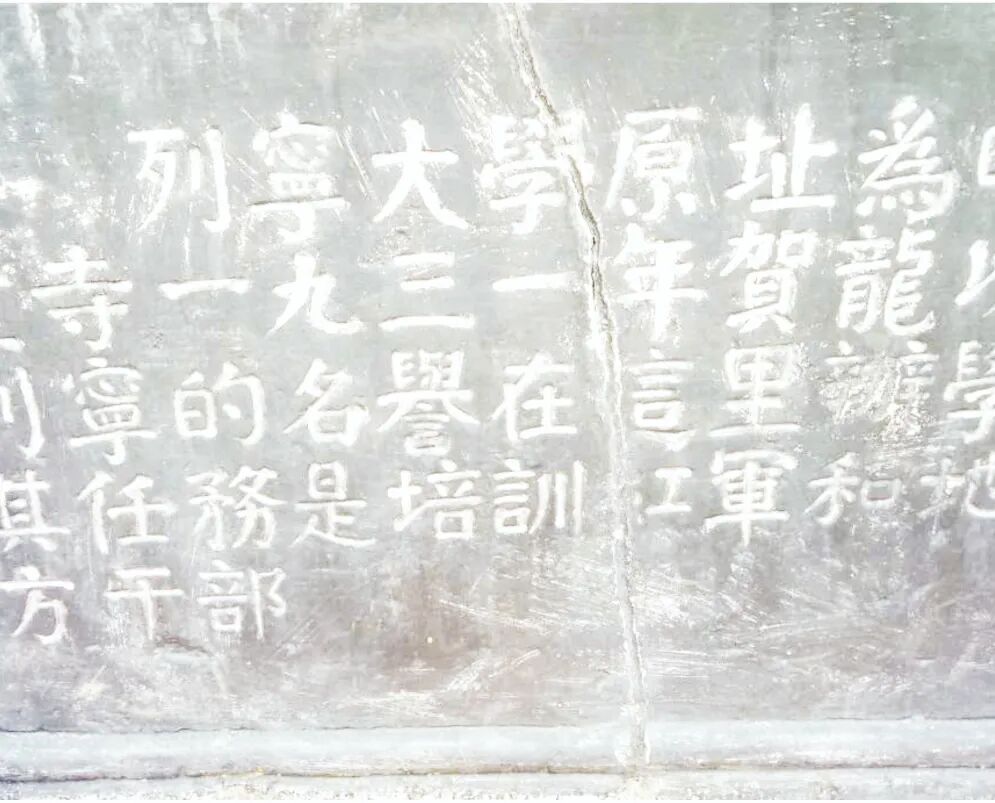 列寧大學原址為
寺一九三一年賀龍以
列寧的名譽在言里辦學
其任務是培訓江軍和地
方干部